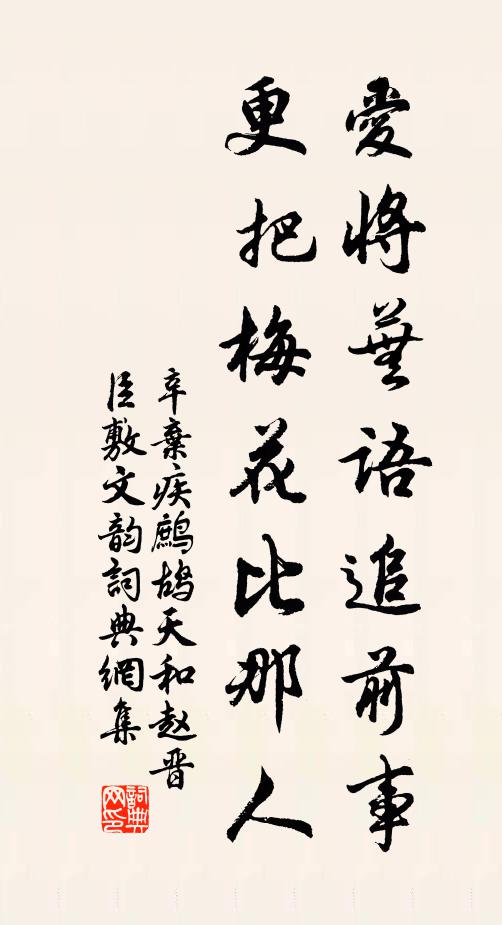 愛將蕪語追前事
更把梅花比那人
辛棄疾鷓鴣天和赵晋
臣敷文韵詞典網集
詞典网印